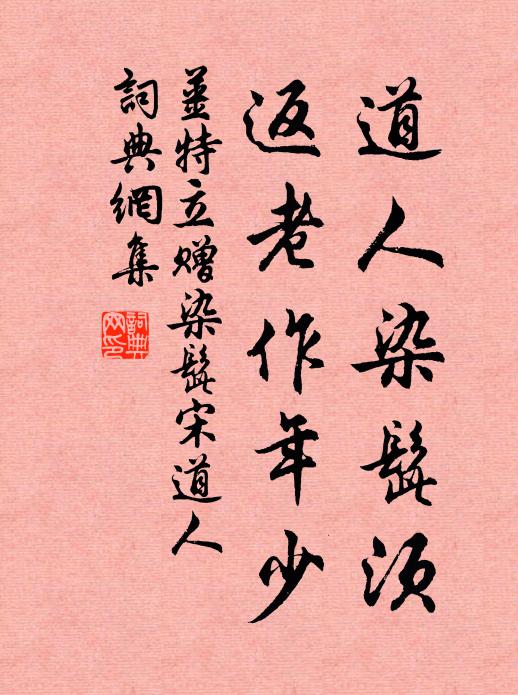 道人染髭须
返老作年少
姜特立赠染髭宋道人
詞典網集
詞典網印